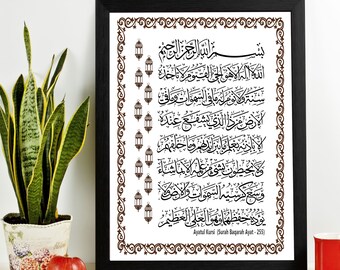 بسم الله الرحمن الرحيم
الله لا إله إلا هو الحي القيوم لا تأخذه
سنة ولا نوم له ما في السموات وما في
الأرض من ذا الذي يشفع عنده
إلا بإذنه يعلم ما بين أيديهم وما خلفهم
ولا يحيطون بشيء من علمه إلا بما شاء
وسع كرسيه السموات والأرض ولا
يئوده حفظهما وهو العلي العظيم
Ayatul Kursi (Surah Baqarah Ayat - 255)